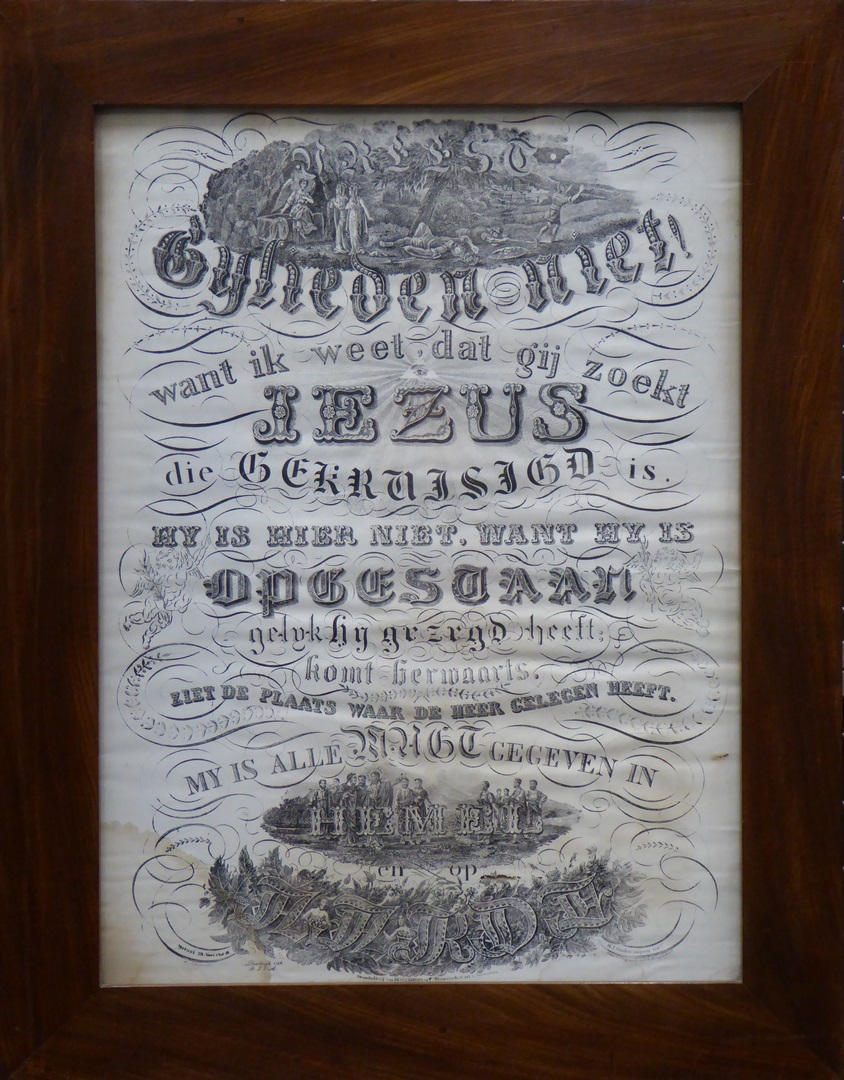 VREEST
Gylieden niet!
want ik weet, dat gij zoekt
JEZUS
die GEKRUISIGD is.
HY IS HIER NIET. WANT HY IS
OPGESTAAN
gelyk hy gezegd heeft;
komt herwaarts.
ZIET DE PLAATS WAAR DE HEER GELEGEN HEEFT.
MY IS ALLE MAGT GEGEVEN IN
HEMEL
en op
AARDE